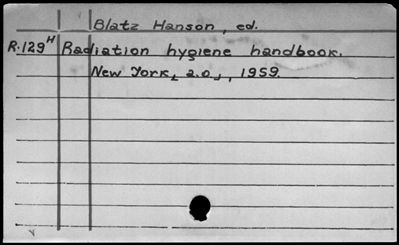 Blatz Hanson, ed.
R.129H Radiation hygiene handbook.
New York, 2.0., 1959.